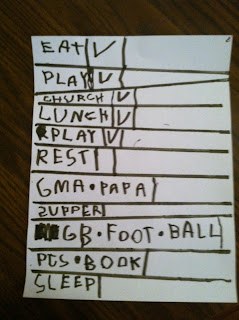 EAT ✓
PLAY ✓
CHURCH ✓
LUNCH ✓
PLAY ✓
REST
GMA•PAPA
SUPPER
GB•FOOT•BALL
PGS•BOOK
SLEEP